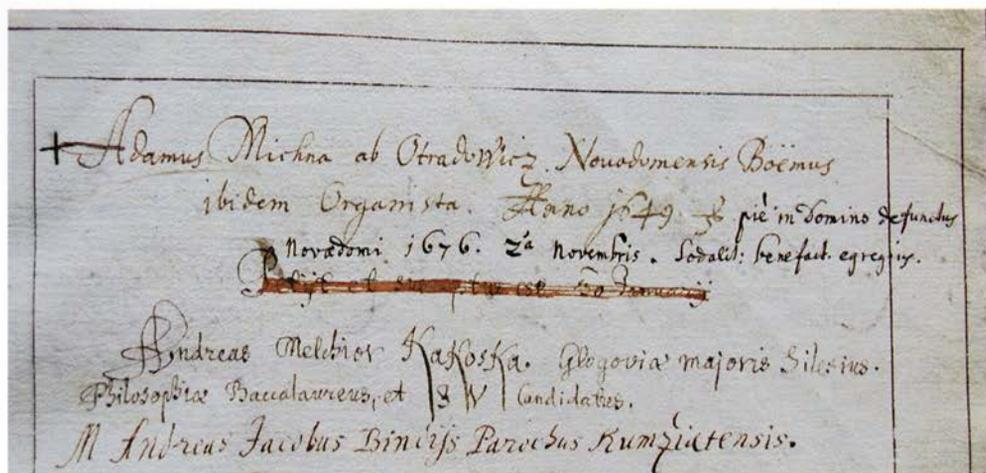 Adamus Michna ab OtradoWicz. Novodomensis Boëmus
ibidem Organista. Anno 1649. piè in Domino defunctus
Novædomi 1676. 2a Novembris. Sodalit: benefact. egregius.
et est 30 Januarij
Andreas Melchior KaKosKa. Glogoviæ majoris Silesius.
Philosophiæ Baccalaureus, et Candidatus.
M Andreas Jacobus Parochus